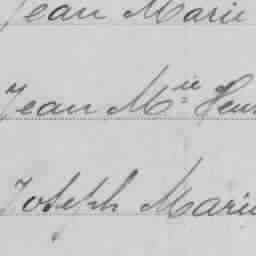 Jean Marie
Jean M.ie Henri
Joseph Marie